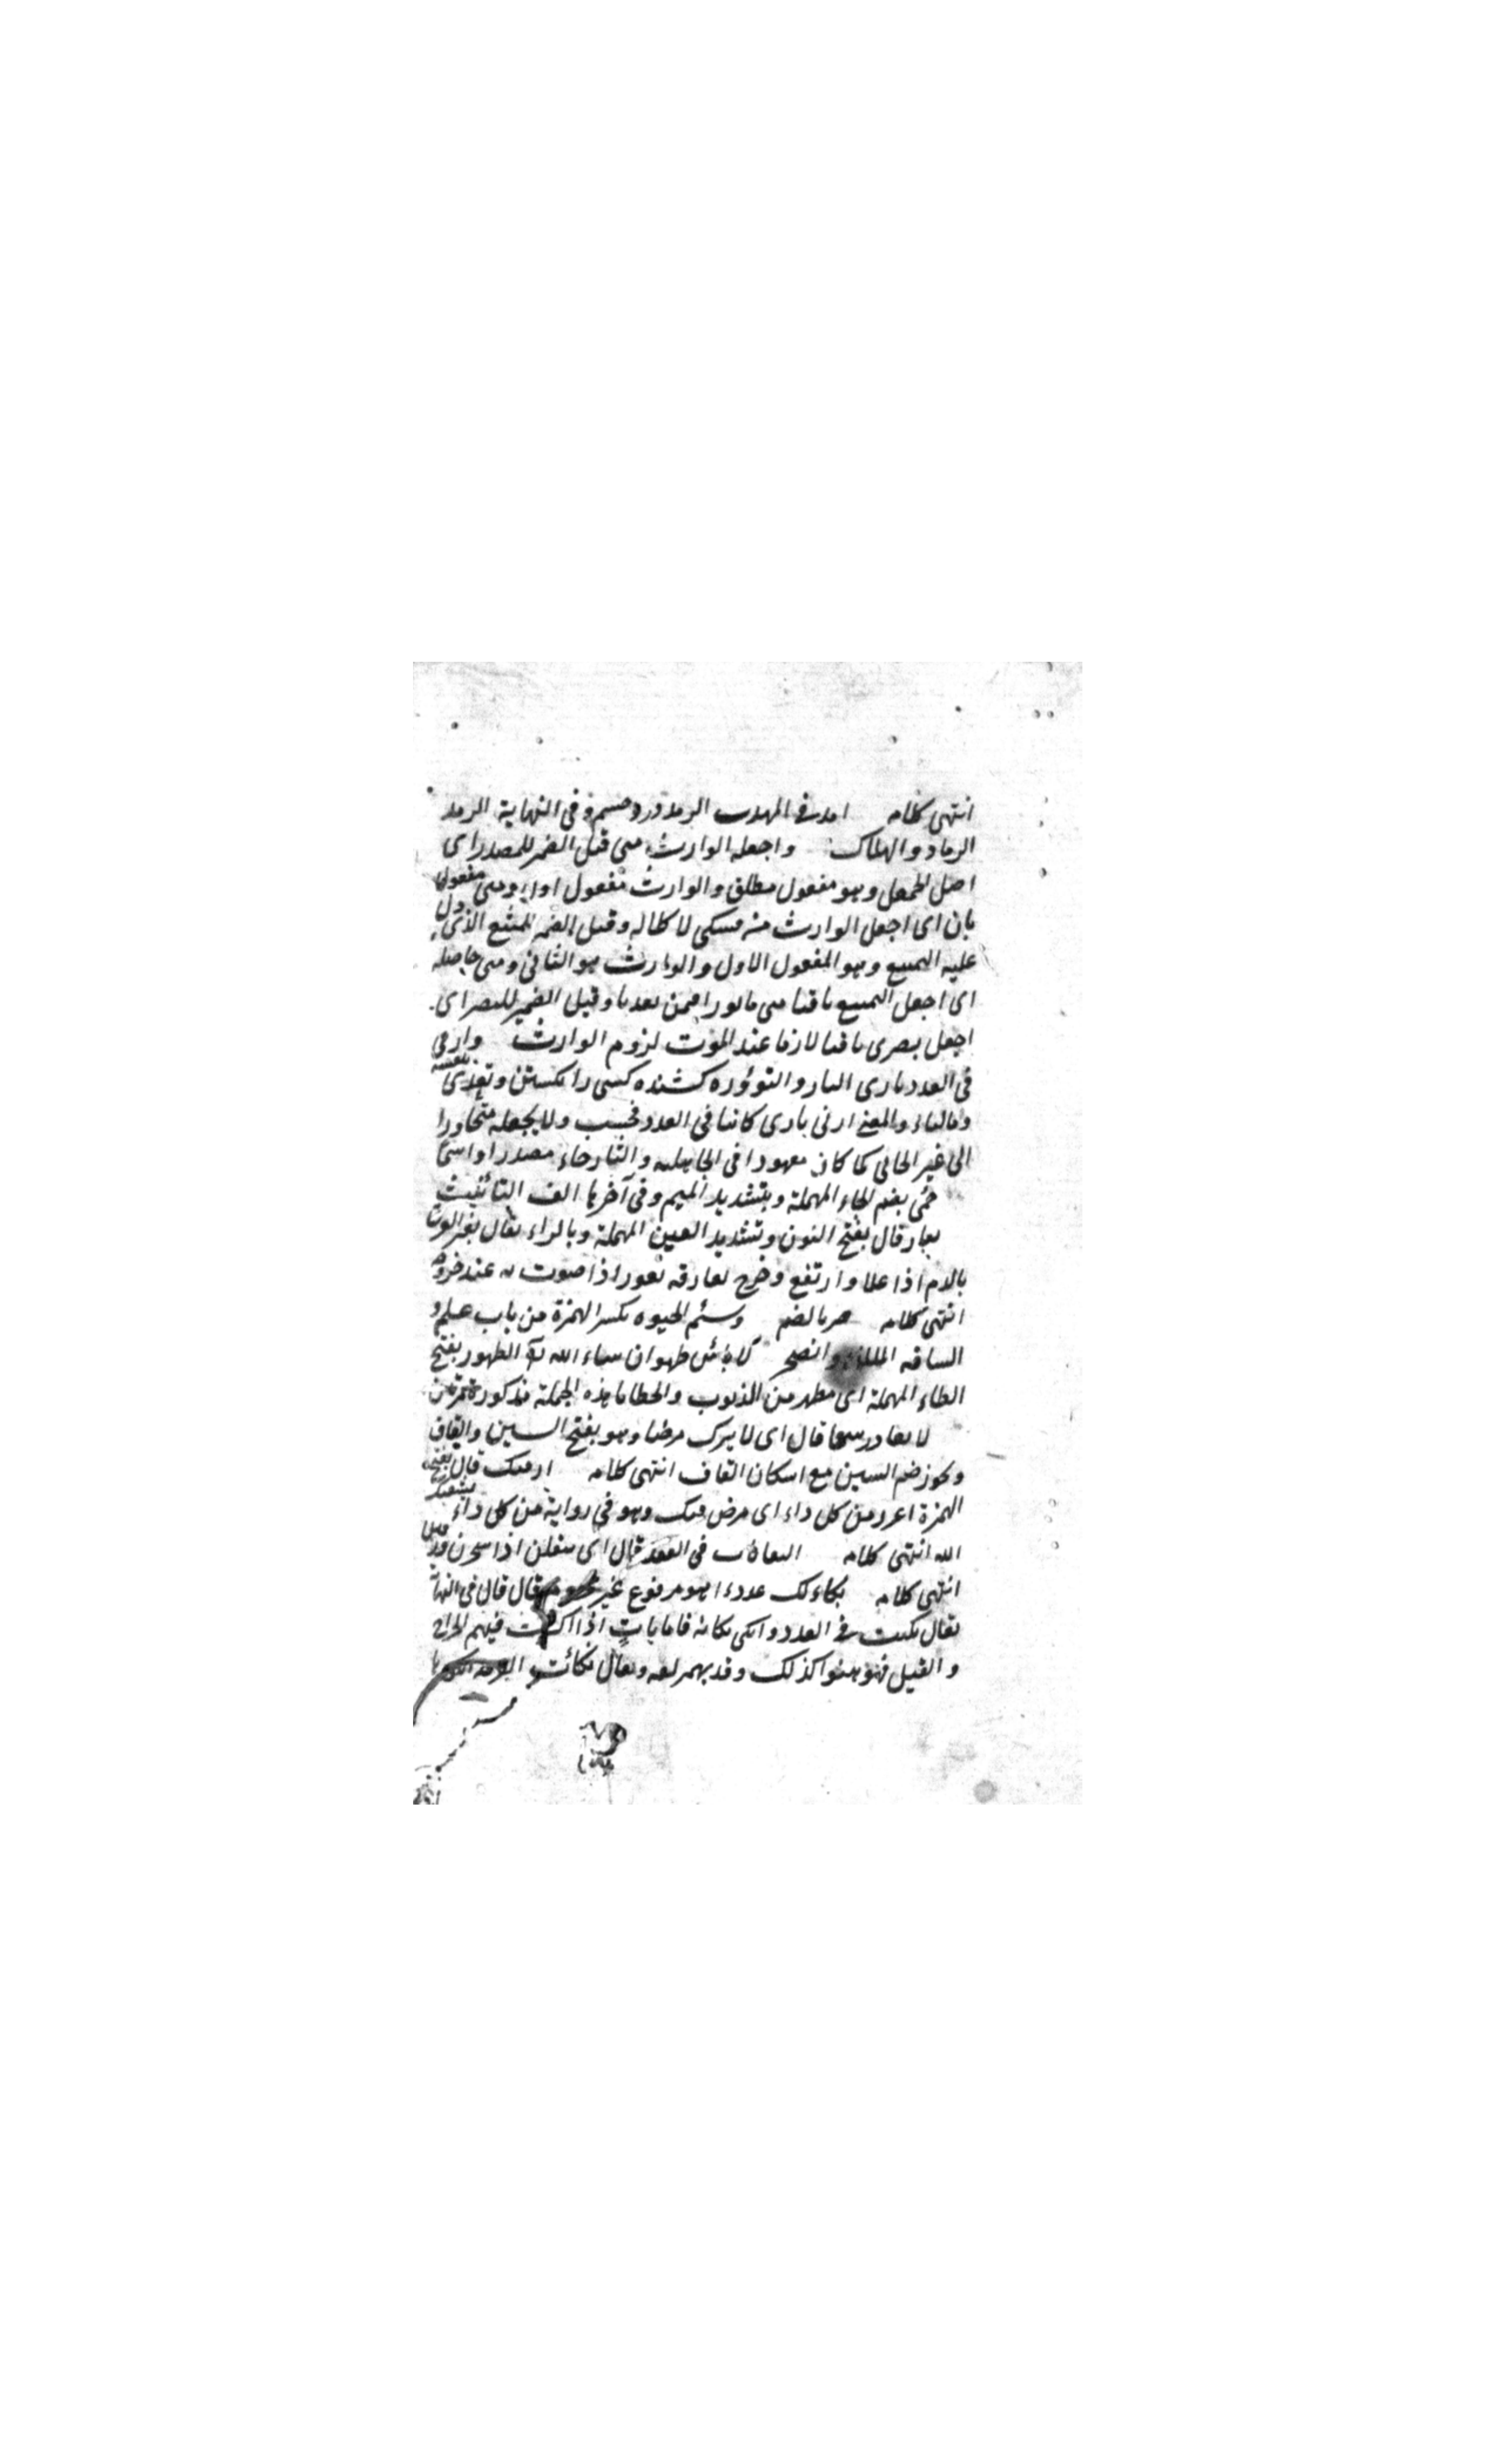 انتهى كلامه الرمد درد چشم و فى النهاية الرمد
الرماد والهلاك واجعله الوارث منى قيل الضمير للمصدر اى
اجعل الجعل وهو مفعول مطلق والوارث مفعول اول ومنى مفعول
ثان اى اجعل الوارث منى لا كلالة وقيل الضمير للتمتع الذى دل
عليه التمتيع وهو المفعول الاول والوارث هو الثانى ومنى صلة
اى اجعل التمتيع باقيا منى مأثورا فيمن بعدنا وقيل الضمير للبصر اى
اجعل بصرى باقيا لازما عند الموت لزوم الوارث وارنى
فى العدو ثارى الثار والثؤورة كشنده كسى را كشتن وتعدى بنفسه
وبالباء والمعنى ارنى ثارى كائنا فى العدو فحسب ولا تجعله متجاوزا
الى غير الجانى كما كان معهودا فى الجاهلية والثار جاء مصدرا واسما
حمى بضم الحاء المهملة وبتشديد الميم وفى آخرها الف التأنيث
نعار قال بفتح النون وتشديد العين المهملة وبالراء يقال نعر العرق
بالدم اذا علا وارتفع وجرح نعار ونعور اذا صوت دمه عند خروجه
انتهى كلامه ضر بالضم وسئم الحيوة بكسر الهمزة من باب علم
السآمة الملالة لا بأس طهور ان شاء الله تعالى الطهور بفتح
الطاء المهملة اى مطهر من الذنوب والخطايا هذه الجملة مذكورة مرتين
لا يغادر سقما قال اى لا يترك مرضا وهو بفتح السين والقاف
ويجوز ضم السين مع اسكان القاف انتهى كلامه ارقيك قال بفتح
الهمزة اعوذ من كل داء اى مرض فيك وهو فى رواية من كل داء يشفيك
الله انتهى كلامه النفاثات فى العقد قال اى يتفلن اذا سحرن ورقين
انتهى كلامه ينكأ لك عدوا هو مرفوع غير مجزوم قال قال فى النهاية
يقال نكيت فى العدو انكى نكاية فانا ناكٍ اذا اكثرت فيهم الجراح
والقتل فوهنوا كذلك وقد يهمز لغة ويقال نكأت القرحة انكؤها